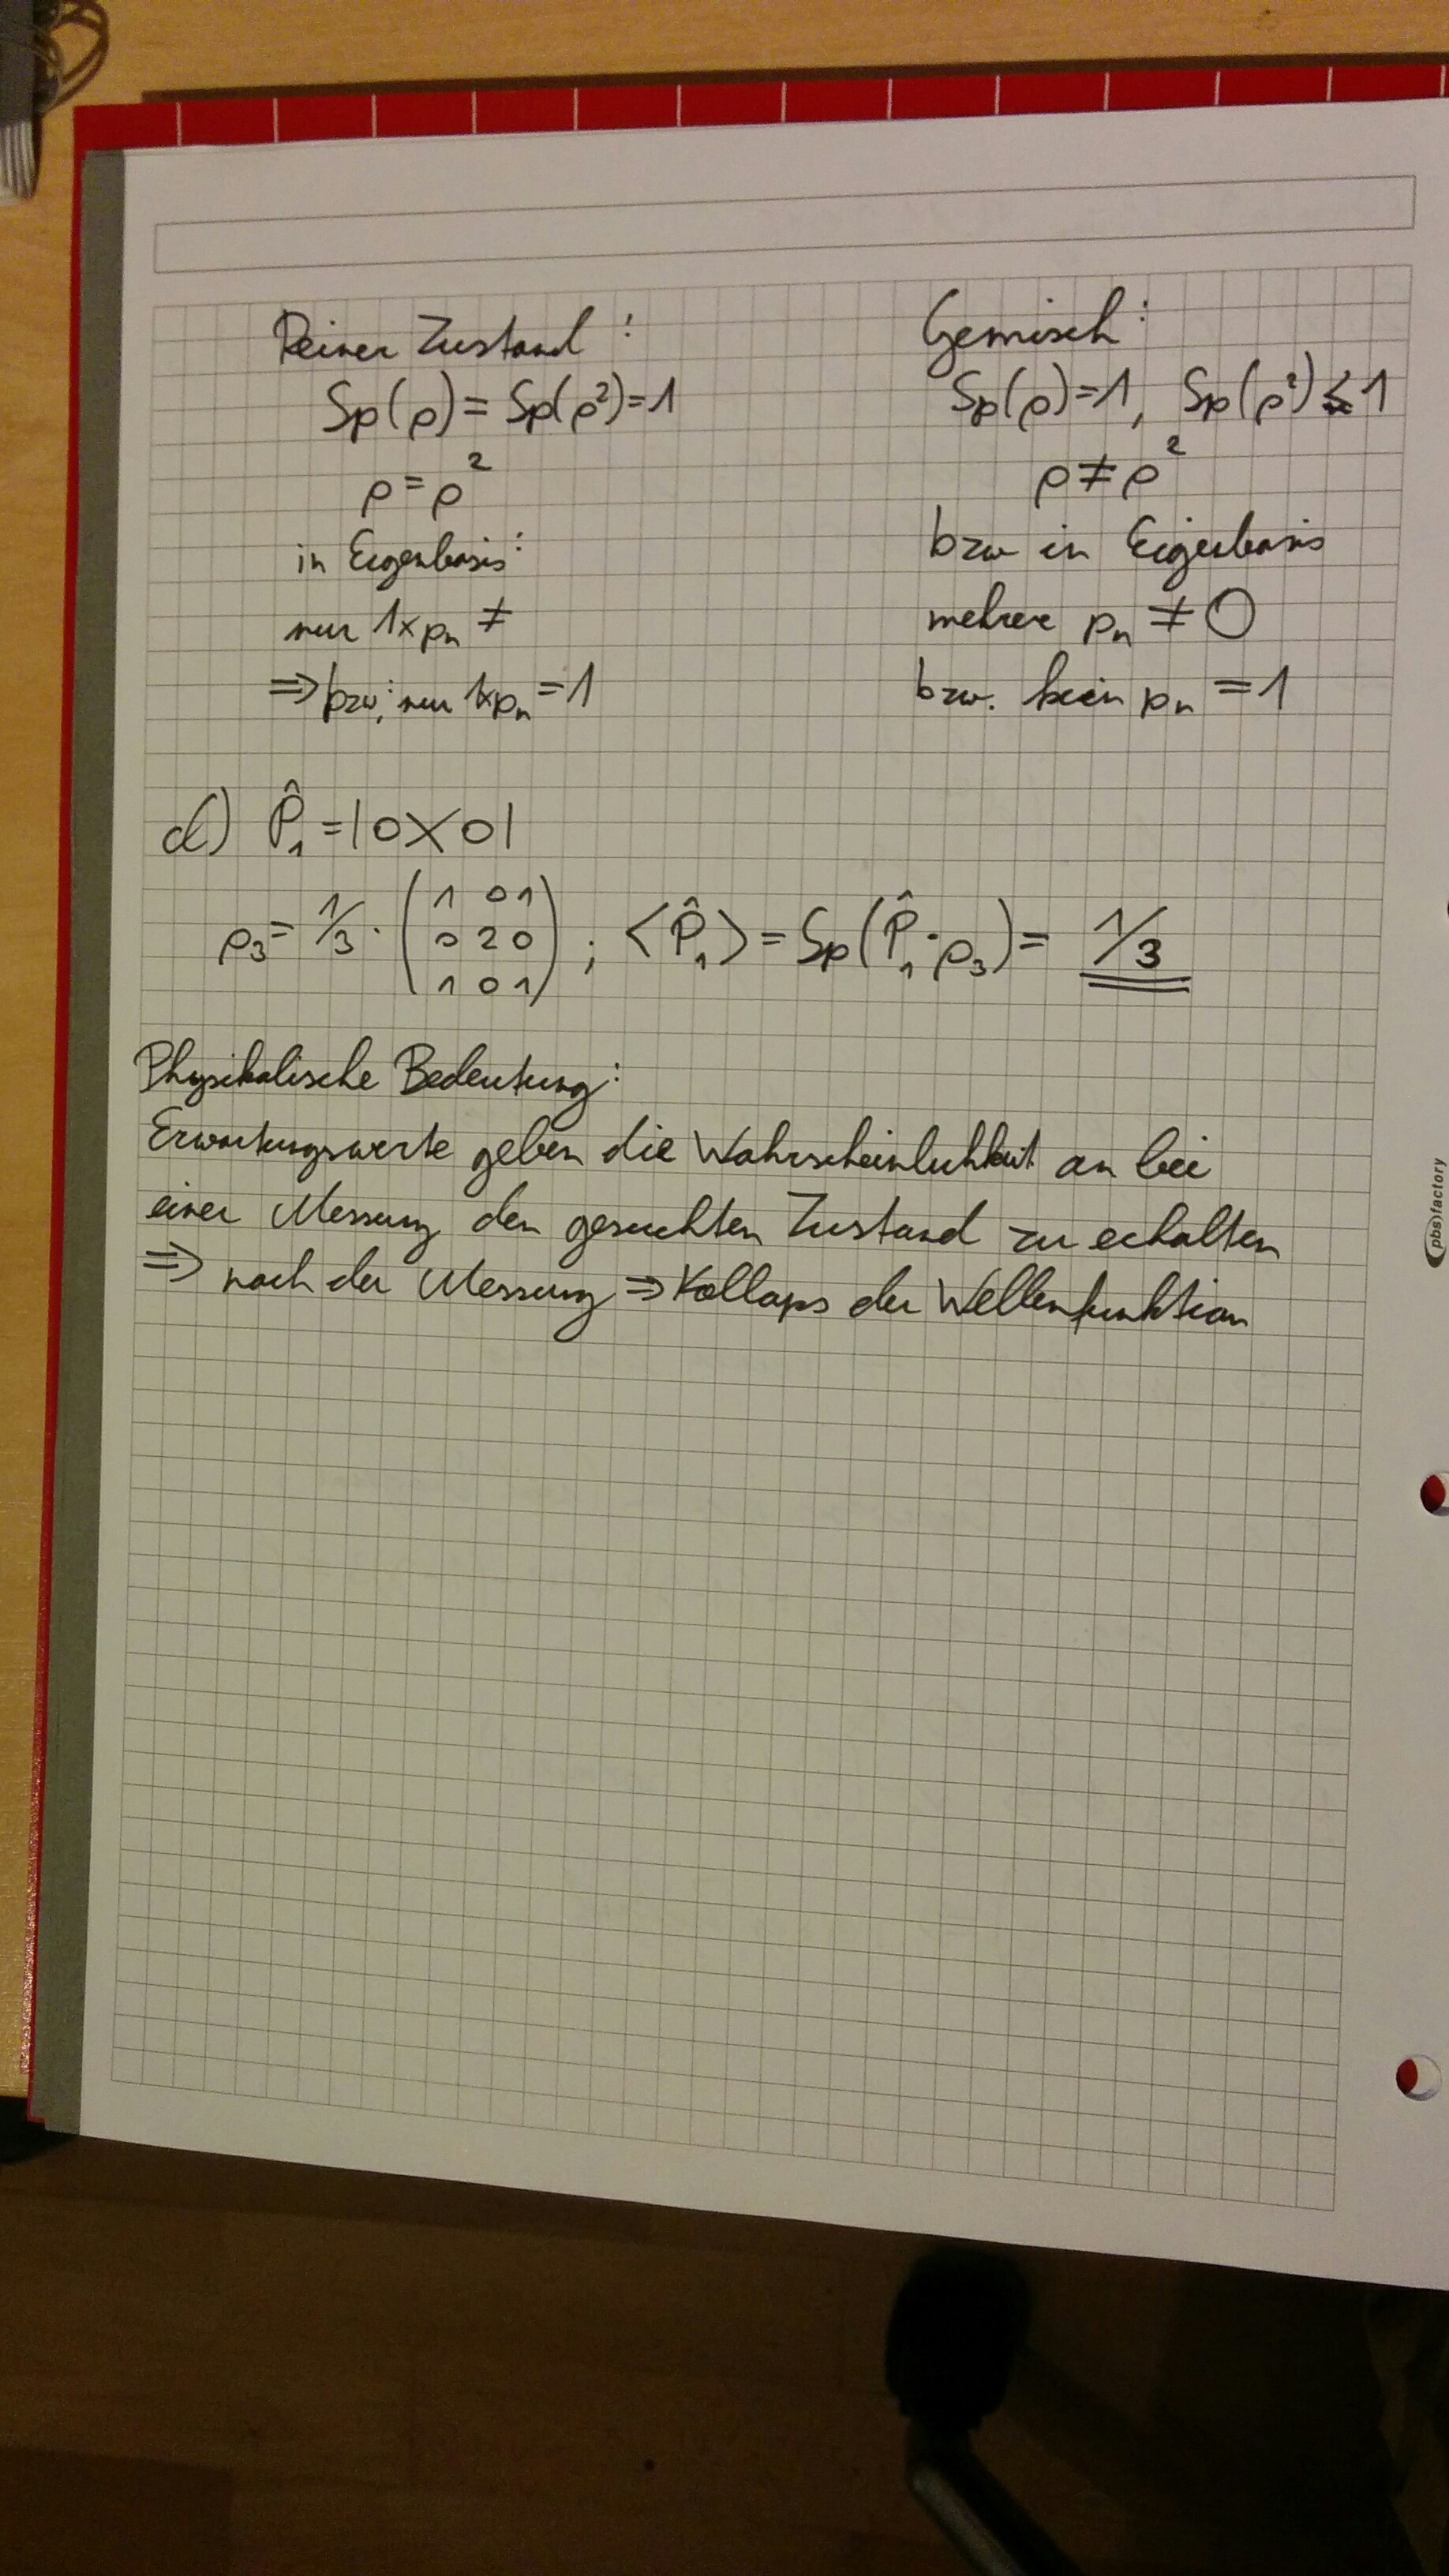 Reiner Zustand:
Sp(ρ) = Sp(ρ²) = 1
ρ = ρ²
in Eigenbasis:
nur 1x pₙ ≠
⇒ bzw; nur 1x pₙ = 1
Gemisch:
Sp(ρ)=1, Sp(ρ²) ≤ 1
ρ ≠ ρ²
bzw in Eigenbasis
mehrere pₙ ≠ 0
bzw. kein pₙ = 1
d) P̂₁ = |0X0|
ρ₃ = 1/3 · (1 0 1 / 0 2 0 / 1 0 1) ; <P̂₁> = Sp(P̂₁·ρ₃) = 1/3
Physikalische Bedeutung:
Erwartungswerte geben die Wahrscheinlichkeit an bei
einer Messung den gesuchten Zustand zu erhalten
⇒ nach der Messung ⇒ Kollaps der Wellenfunktion
(pbs)factory